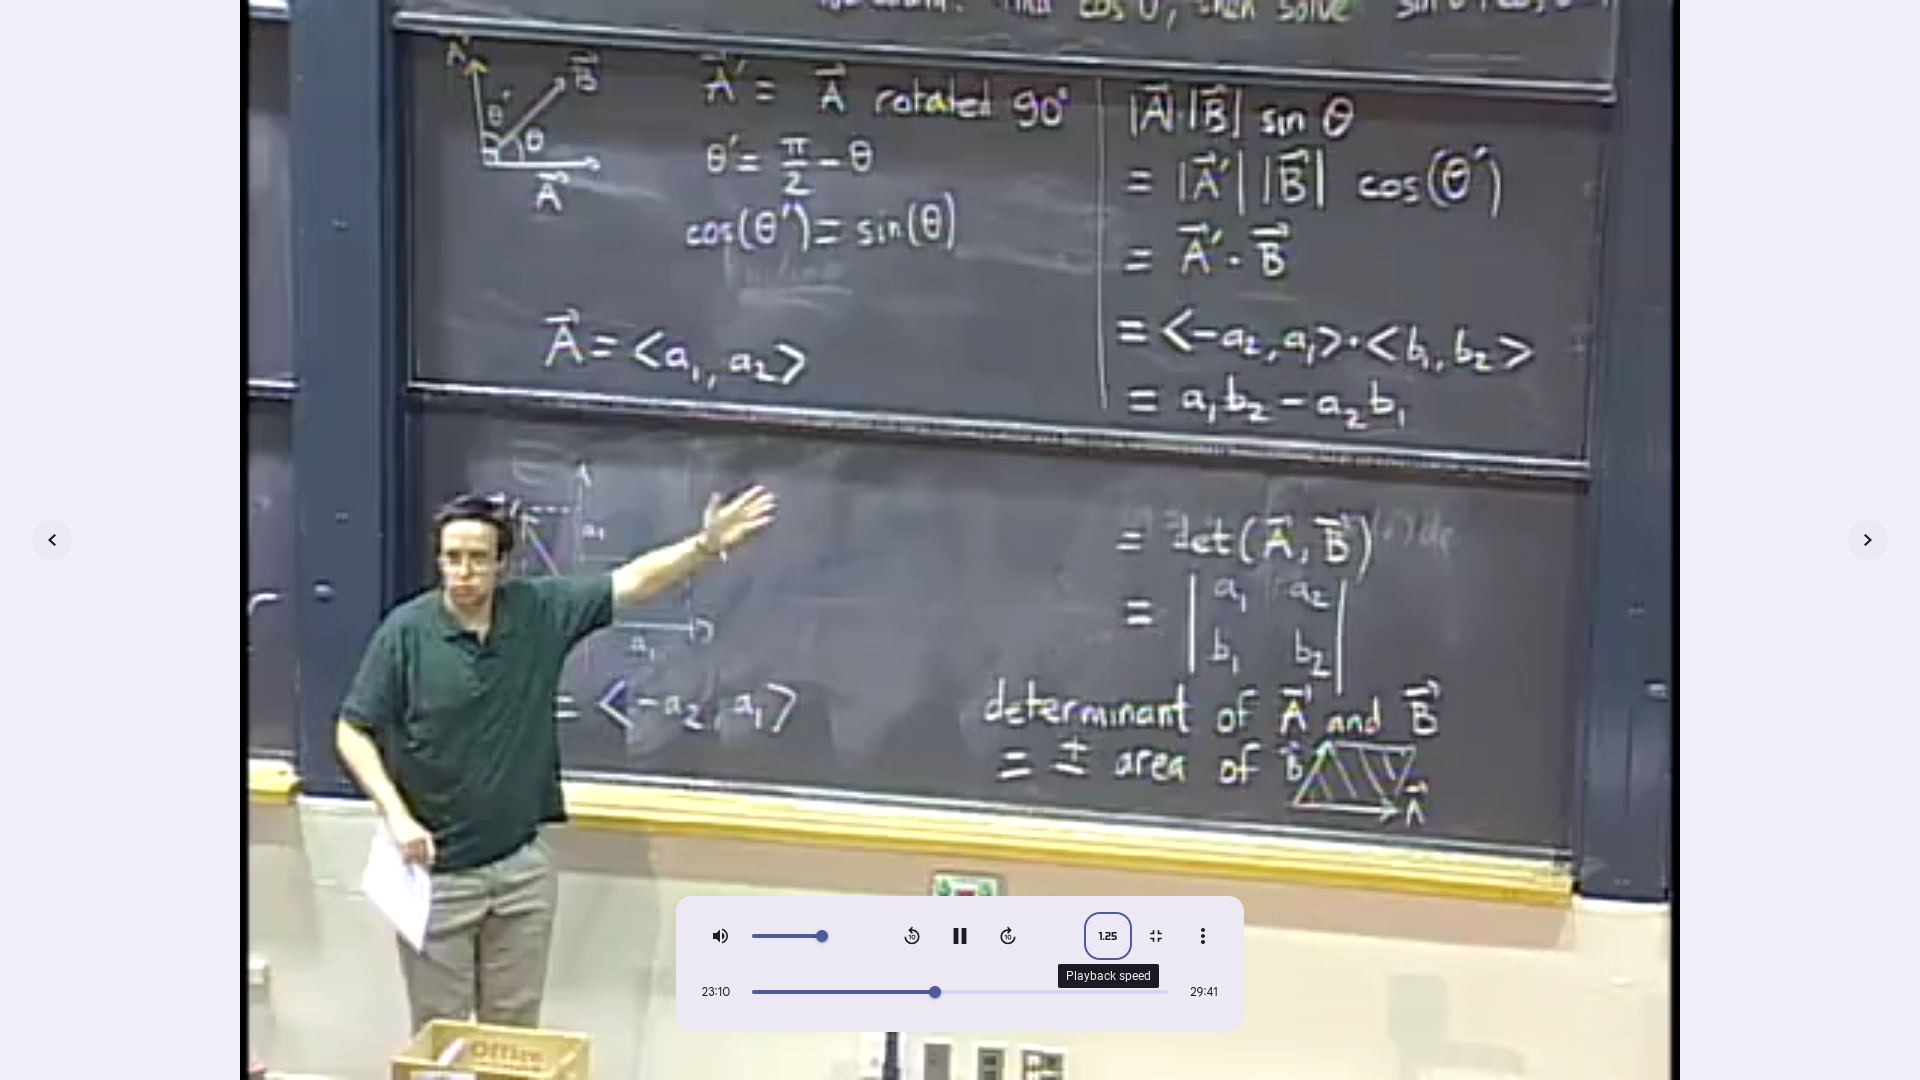 cos θ, then solve
A'
B
θ'
θ
A
A' = A rotated 90°
θ' = π/2 - θ
cos(θ') = sin(θ)
A = <a₁, a₂>
|A| |B| sin θ
= |A'| |B| cos(θ')
= A' · B
= <-a₂, a₁> · <b₁, b₂>
= a₁b₂ - a₂b₁
a₁
a₁
= <-a₂, a₁>
= det(A, B)
= | a₁ a₂ |
b₁ b₂
determinant of A and B
= ± area of B
A
Office
10
10
1.25
Playback speed
23:10
29:41